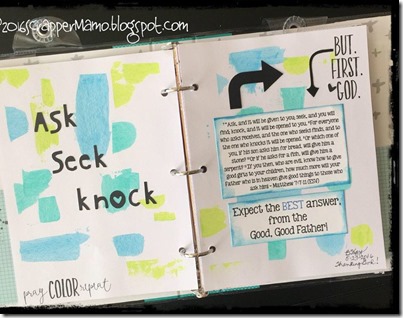 ©2016scrapperMamo.blogspot.com
Ask
Seek
knock
pray COLOR repeat
BUT.
FIRST.
GOD.
"Ask, and it will be given to you; seek, and you will
find; knock, and it will be opened to you. For everyone
who asks receives, and the one who seeks finds, and to
the one who knocks it will be opened. Or which one of
you, if his son asks him for bread, will give him a
stone? Or if he asks for a fish, will give him a
serpent? If you then, who are evil, know how to give
good gifts to your children, how much more will your
Father who is in heaven give good things to those who
ask him - Matthew 7:7-11 (ESV)
Expect the BEST answer,
from the
Good, Good Father!